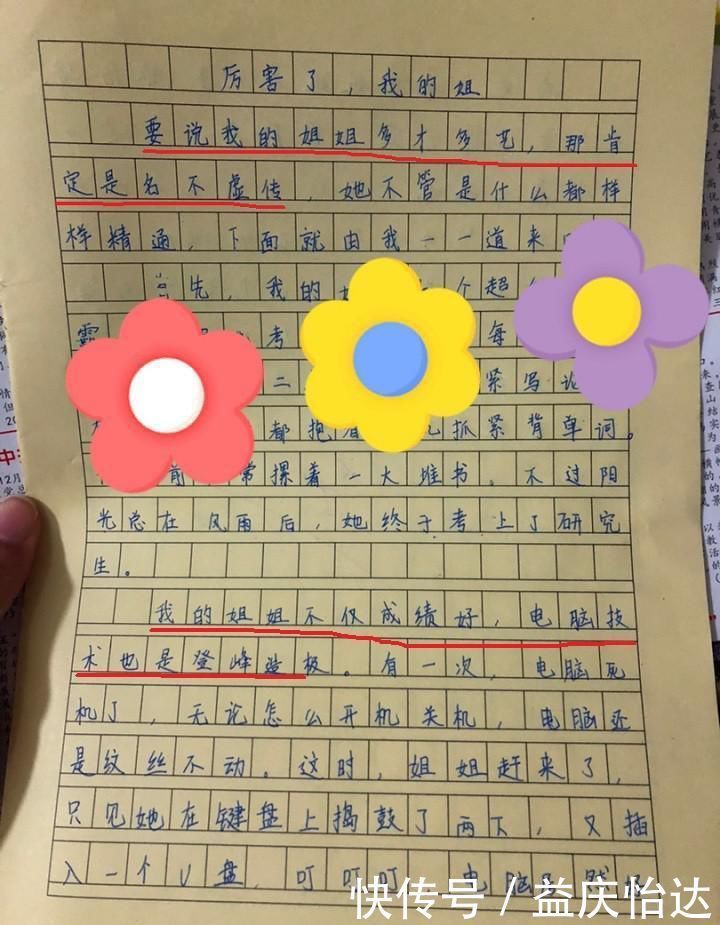 厉害了，我的姐
要说我的姐姐多才多艺，那肯
定是名不虚传，她不管是什么都样
样精通，下面就由我一一道来
首先，我的 个超
霸 考 每
二 紧写论
都抱着 抓紧背单词。
前 常摞着一大堆书。不过阳
光总在风雨后，她终于考上了研究
生。
我的姐姐不仅成绩好，电脑技
术也是登峰造极。有一次，电脑死
机了，无论怎么开机关机，电脑还
是纹丝不动。这时，姐姐赶来了，
只见她在键盘上捣鼓了两下，又插
入一个U盘，叮叮叮，电脑
快传号/益庆怡达